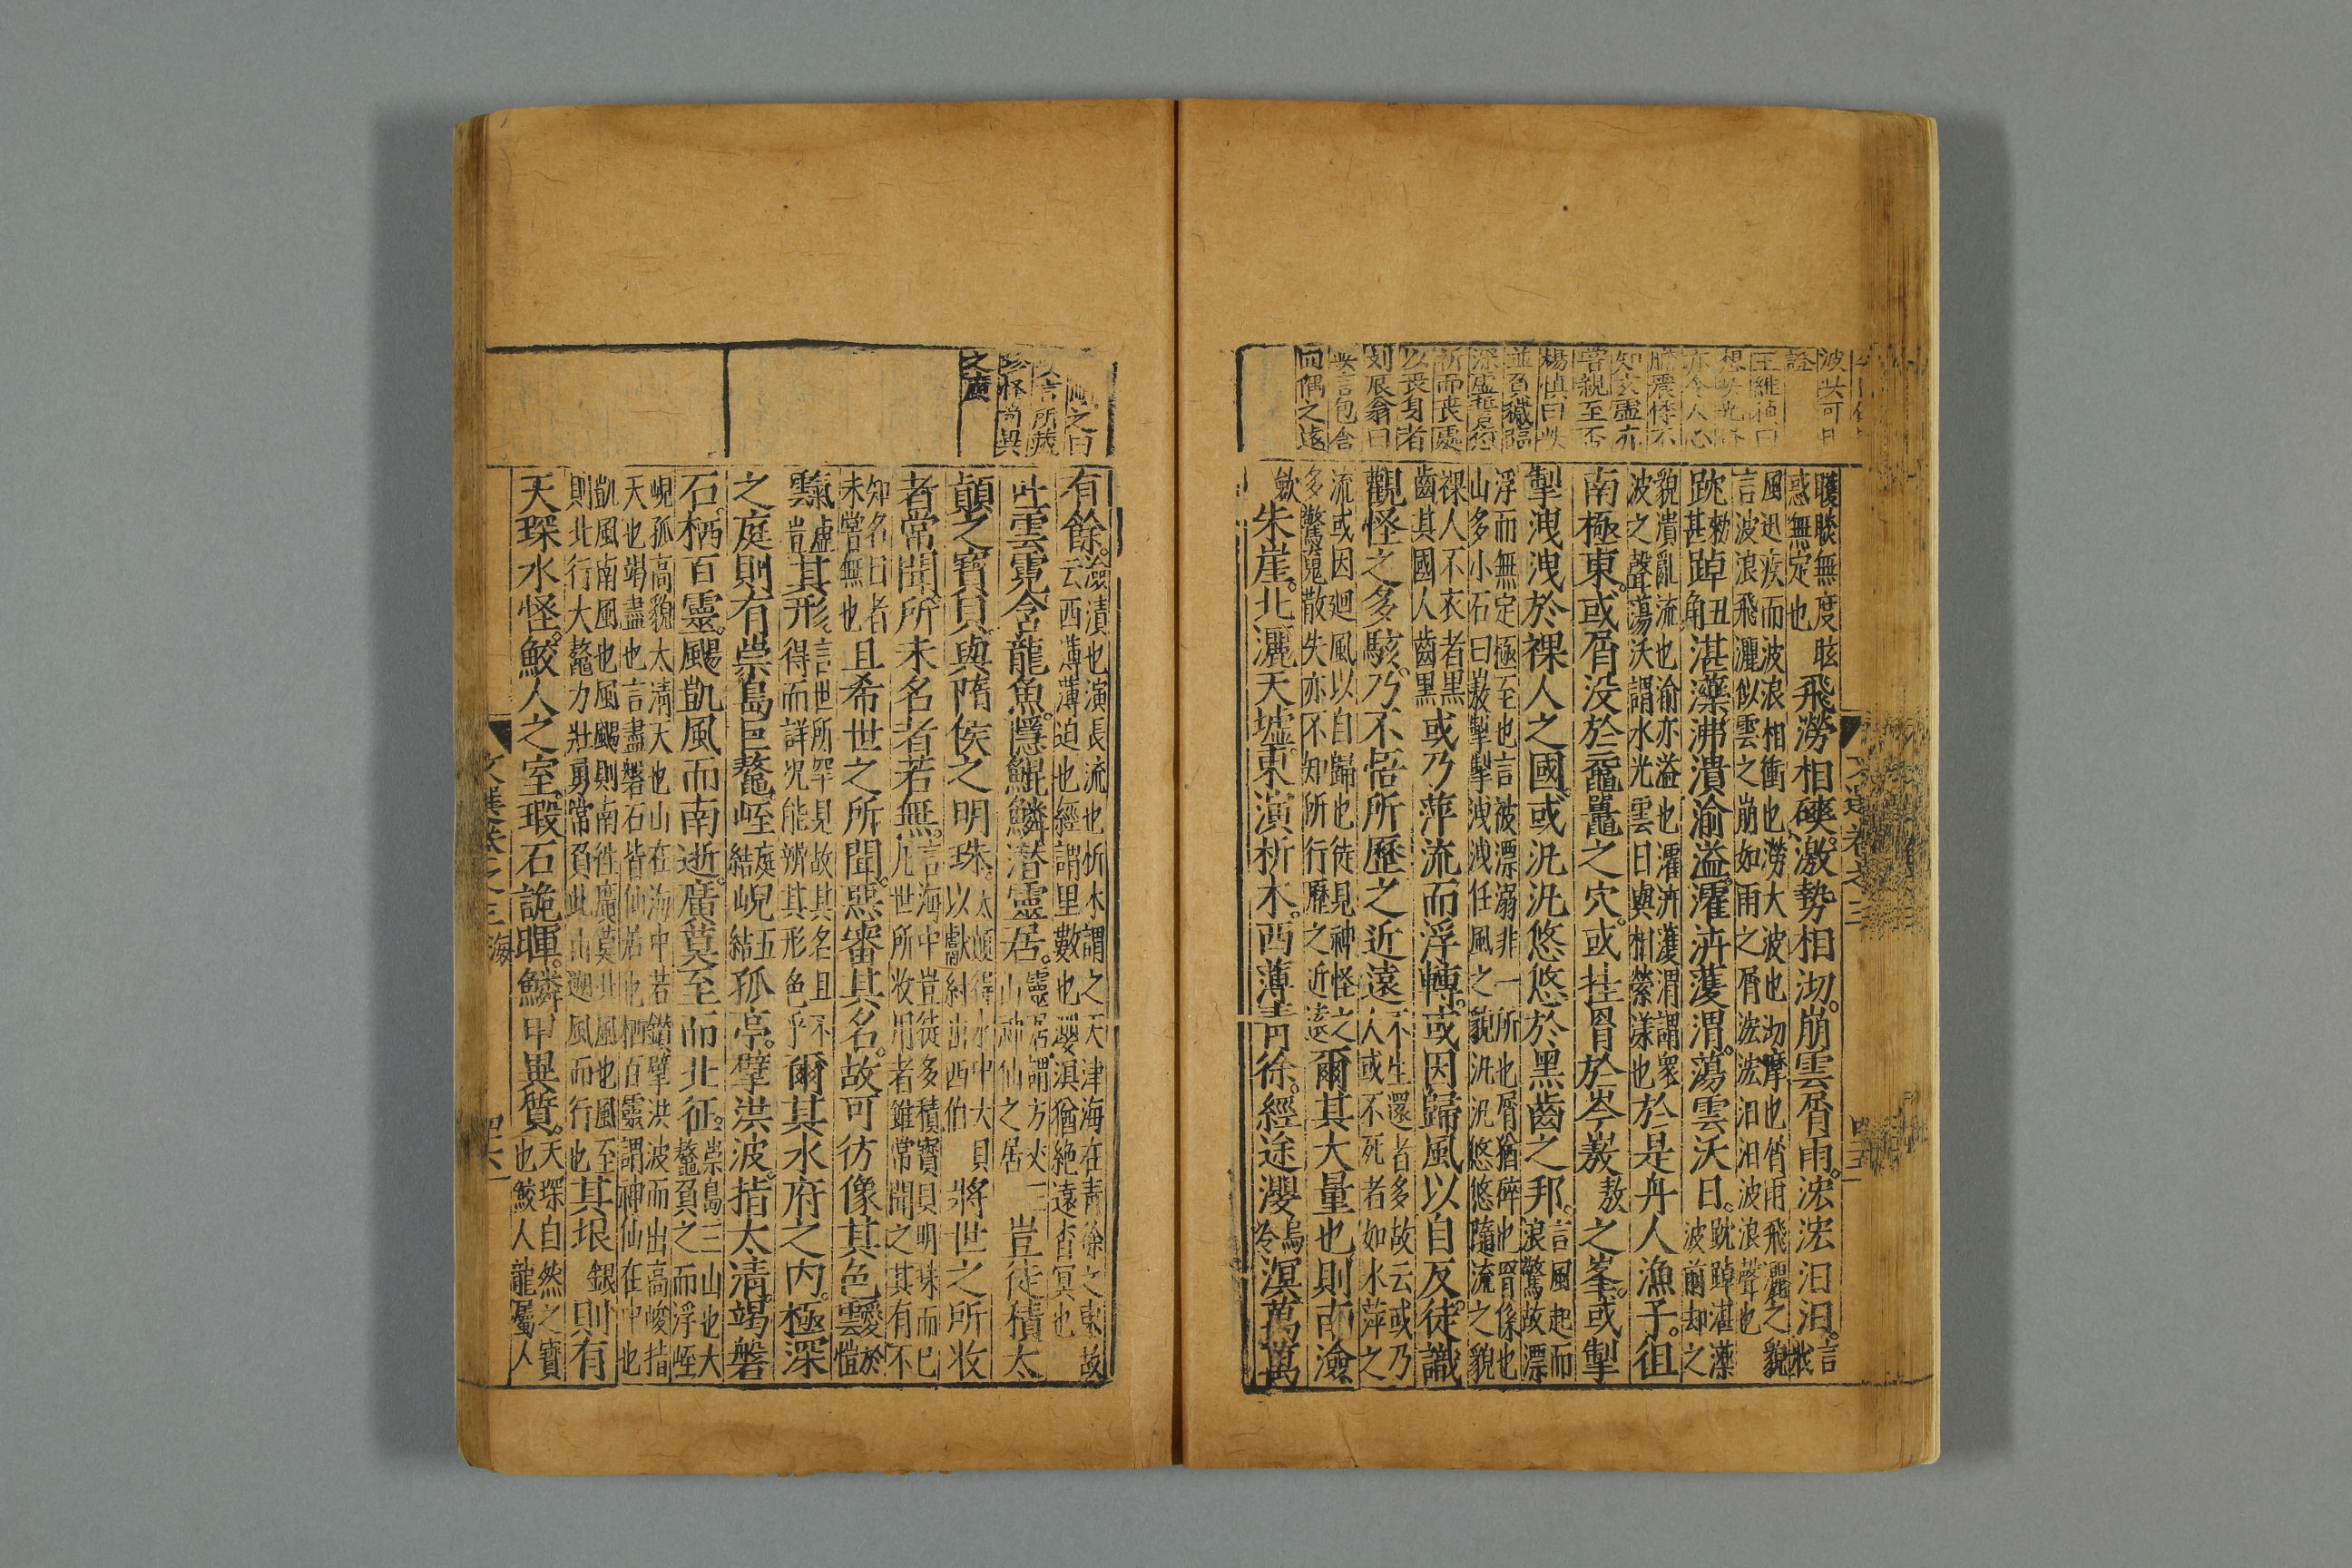 證
王維禎曰
亦令人心
膽震悸不
知玄虛亦
嘗親至否
楊慎曰
並負穢臨
深虛誓愆
祈而喪處
以喪身者
刻辰翁曰
言包含
之遠
無度眩
惑無定也
飛澇相磢。激勢相沏。崩雲屑雨。浤浤汩汩。言
風迅疾而波浪相衝也澇大波也沏摩也屑雨飛灑之貌
言波浪飛灑似雲之崩如雨之屑浤浤汩汩波浪聲也
勑甚踔丑角湛㶏沸潰渝溢瀖泋濩渭。蕩雲沃日。踔湛㶏波前却之
貌潰亂流也渝亦溢也瀖泋濩渭謂衆
波之聲蕩沃謂水光雲日與相縈漾也
於是舟人漁子。徂
南極東。或屑没於黿鼉之穴。或挂罥於岑㟼敖之峯。或掣
掣洩洩於裸人之國。或汎汎悠悠於黑齒之邦。言風起而浪驚故漂
浮而無定極至也言被漂溺非一所也屑猶碎也罥係也
山多小石曰㟼掣掣洩洩任風之貌汎汎悠悠隨流之貌
裸人不衣者黑
齒其國人齒黑
或乃萍流而浮轉。或因歸風以自反。徒識
觀怪之多駭。乃不悟所歷之近遠不生還者多故云或乃人或不死者如水萍之
流或因廻風以自歸也徒見神怪之
多驚鬼散失亦不知所行歷之近遠
爾其大量也。則南澰
歛朱崖。北灑天墟。東演析木。西薄青徐。經途瀴烏冷溟萬萬
文選卷之三
之曰
言所藏
珍怪尚異
之廣
有餘。澰漬也演長流也析木謂之天津海在青徐之東故
云西薄薄迫也經謂里數也瀴溟猶絶遠杳冥也
吐雲霓含龍魚。隱鯤鱗潜靈居。靈居謂方丈三山神仙之居豈徒積太
顛之寶貝與隋侯之明珠。太顛得水中大貝以獻紂出西伯將世之所收
者常聞。所未名者若無。言海中豈徒多積寶貝明珠而已凡世所收用者雖常聞之其有不
知名目者未嘗無也且希世之所聞。惡審其名。故可彷像其色靉於愷
靅虛豈其形。言世所罕見故其名且不得而詳况能辨其形色乎爾其水府之内。極深
之庭則有崇島巨鼇。峌庭結峴五結孤亭。擘洪波。指太清。竭磐
石。栖百靈。颺凱風而南逝。廣莫至而北征。崇島三山也大鼇負之而浮峌
峴孤高貌太清天也山在海中若鑽擘洪波而出高峻指
天也竭盡也言盡磐石皆仙居也栖百靈謂神仙在中也
凱風南風也風颺則南徃廣莫北風也風至
則北行大鼇力壯勇常負此山遡風而行也
其垠銀則有
天琛水怪。鮫人之室。瑕石詭暉。鱗甲異質。天琛自然之寶也鮫人龍屬人
文選卷之三 海